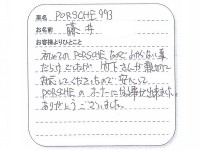 車名 PORSCHE 993
お名前 藤井
お客様よりひとこと
初めてのPORSCHEなので、わからない事
だらけでしたが、竹下さんが親切で
対応してくださったので、安心して
PORSCHEのオーナーに仲間入り出来ました。
ありがとうございました。